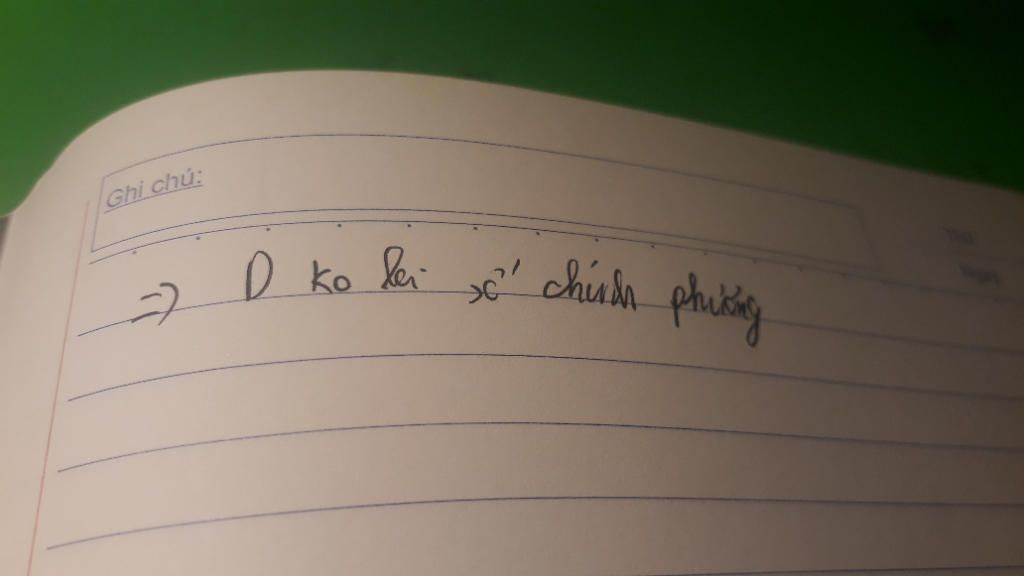 Ghi chú:
Thứ
Ngày
=> D ko là số chính phương